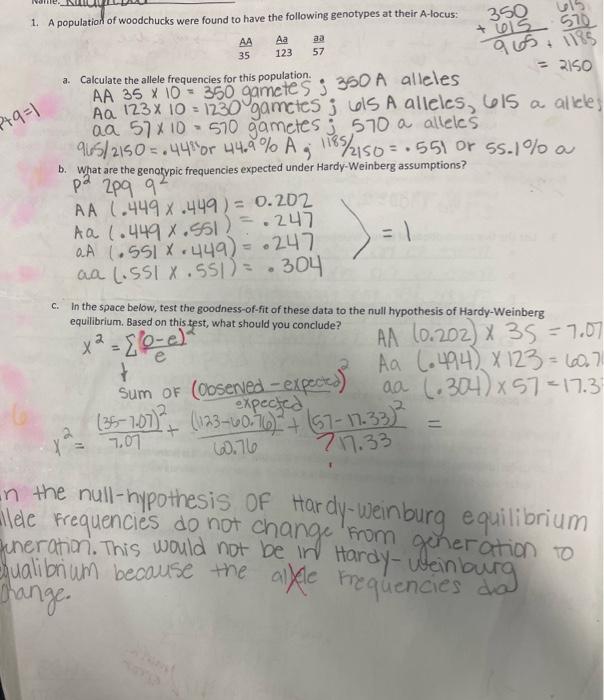 1. A population of woodchucks were found to have the following genotypes at their A-locus:
350 615
+ 615 570
965 , 1185
= 2150
AA Aa aa
35 123 57
p+q=1
a. Calculate the allele frequencies for this population.
AA 35 x 10 = 350 gametes ; 350 A alleles
Aa 123 x 10 = 1230 gametes ; 615 A alleles, 615 a alleles
aa 57 x 10 = 570 gametes ; 570 a alleles
965/2150 = .449 or 44.9% A ; 1185/2150 = .551 or 55.1% a
b. What are the genotypic frequencies expected under Hardy-Weinberg assumptions?
p² 2pq q²
AA (.449 x .449) = 0.202
Aa (.449 x .551) = .247
aA (.551 x .449) = .247
aa (.551 x .551) = .304
= 1
c. In the space below, test the goodness-of-fit of these data to the null hypothesis of Hardy-Weinberg
equilibrium. Based on this test, what should you conclude?
x² = Σ (o-e)² / e
AA (0.202) x 35 = 7.07
Aa (.494) x 123 = 60.7
aa (.304) x 57 = 17.3
Sum OF (observed - expected)² / expected
x² = (35-7.07)² / 7.07 + (123-60.76)² / 60.76 + (57-17.33)² / 17.33 =
?
In the null-hypothesis OF Hardy-Weinburg equilibrium
allele frequencies do not change from generation to
generation. This would not be in Hardy-Weinburg
equalibrium because the allele frequencies did
change.